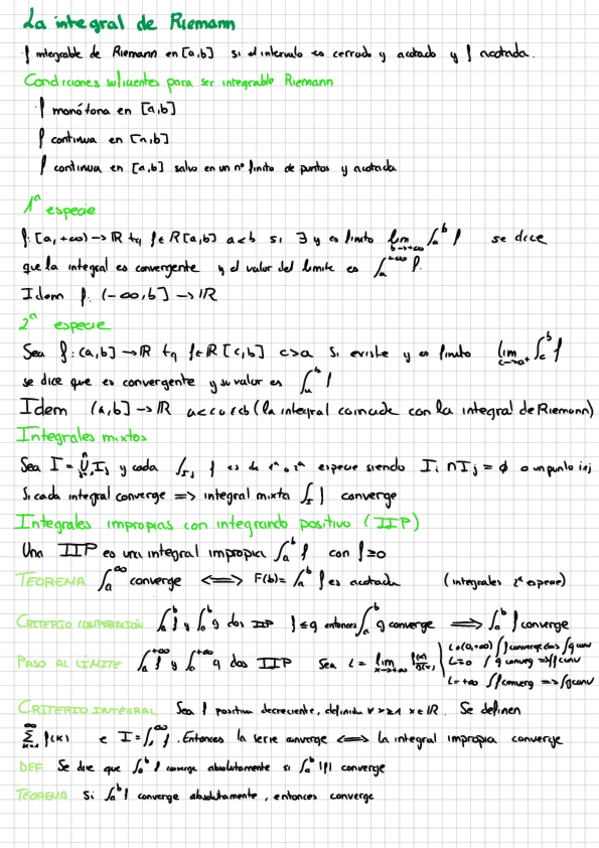 La integral de Riemann
f integrable de Riemann en [a,b] si el intervalo es cerrado y acotado y f acotada.
Condiciones suficientes para ser integrable Riemann
f monótona en [a,b]
f continua en [a,b]
f continua en [a,b] salvo en un nº finito de puntos y acotada
1ª especie
f: [a,+∞) → ℝ tq f∈R[a,b] a<b si ∃ y es finito lim b→+∞ ∫_a^b f se dice
que la integral es convergente y el valor del limite es ∫_a^{+∞} f.
Idem f: (-∞,b] → ℝ
2ª especie
Sea f: (a,b] → ℝ tq f∈R[c,b] c>a Si existe y es finito lim c→a⁺ ∫_c^b f
se dice que es convergente y su valor es ∫_a^b f
Idem (a,b] → ℝ (la integral coincide con la integral de Riemann)
Integrales mixtas
Sea I = ∪ I_j y cada ∫_{I_j} f es de 1ª o 2ª especie siendo I_i ∩ I_j = ∅ o un punto
Si cada integral converge => integral mixta ∫_I f converge
Integrales impropias con integrando positivo (IIP)
Una IIP es una integral impropia ∫_a^b f con f≥0
TEOREMA ∫_a^∞ converge <=> F(b)= ∫_a^b f es acotada (integrales 2ª especie)
CRITERIO COMPARACIÓN ∫_a^b f y ∫_a^b g dos IIP f≤g entonces ∫_a^b g converge => ∫_a^b f converge
PASO AL LÍMITE ∫_a^{+∞} f y ∫_a^{+∞} g dos IIP Sea L = lim x→+∞ f(x)/g(x) { L∈(0,+∞) ∫f converge <=> ∫g conv
L=0 ∫g converg => ∫f conv
L=+∞ ∫f converg => ∫g conv
CRITERIO INTEGRAL Sea f positiva decreciente, definida ∀ x≥1 x∈ℝ. Se definen
∑_{k=1}^∞ f(k) e I=∫_1^∞ f. Entonces la serie converge <=> la integral impropia converge
DEF Se dice que ∫_a^b f converge absolutamente si ∫_a^b |f| converge
TEOREMA Si ∫_a^b f converge absolutamente, entonces converge